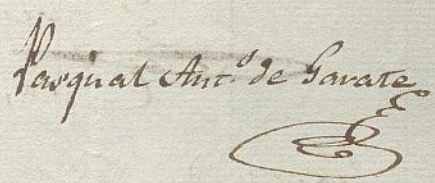 Pasqual Ant.º de Garate